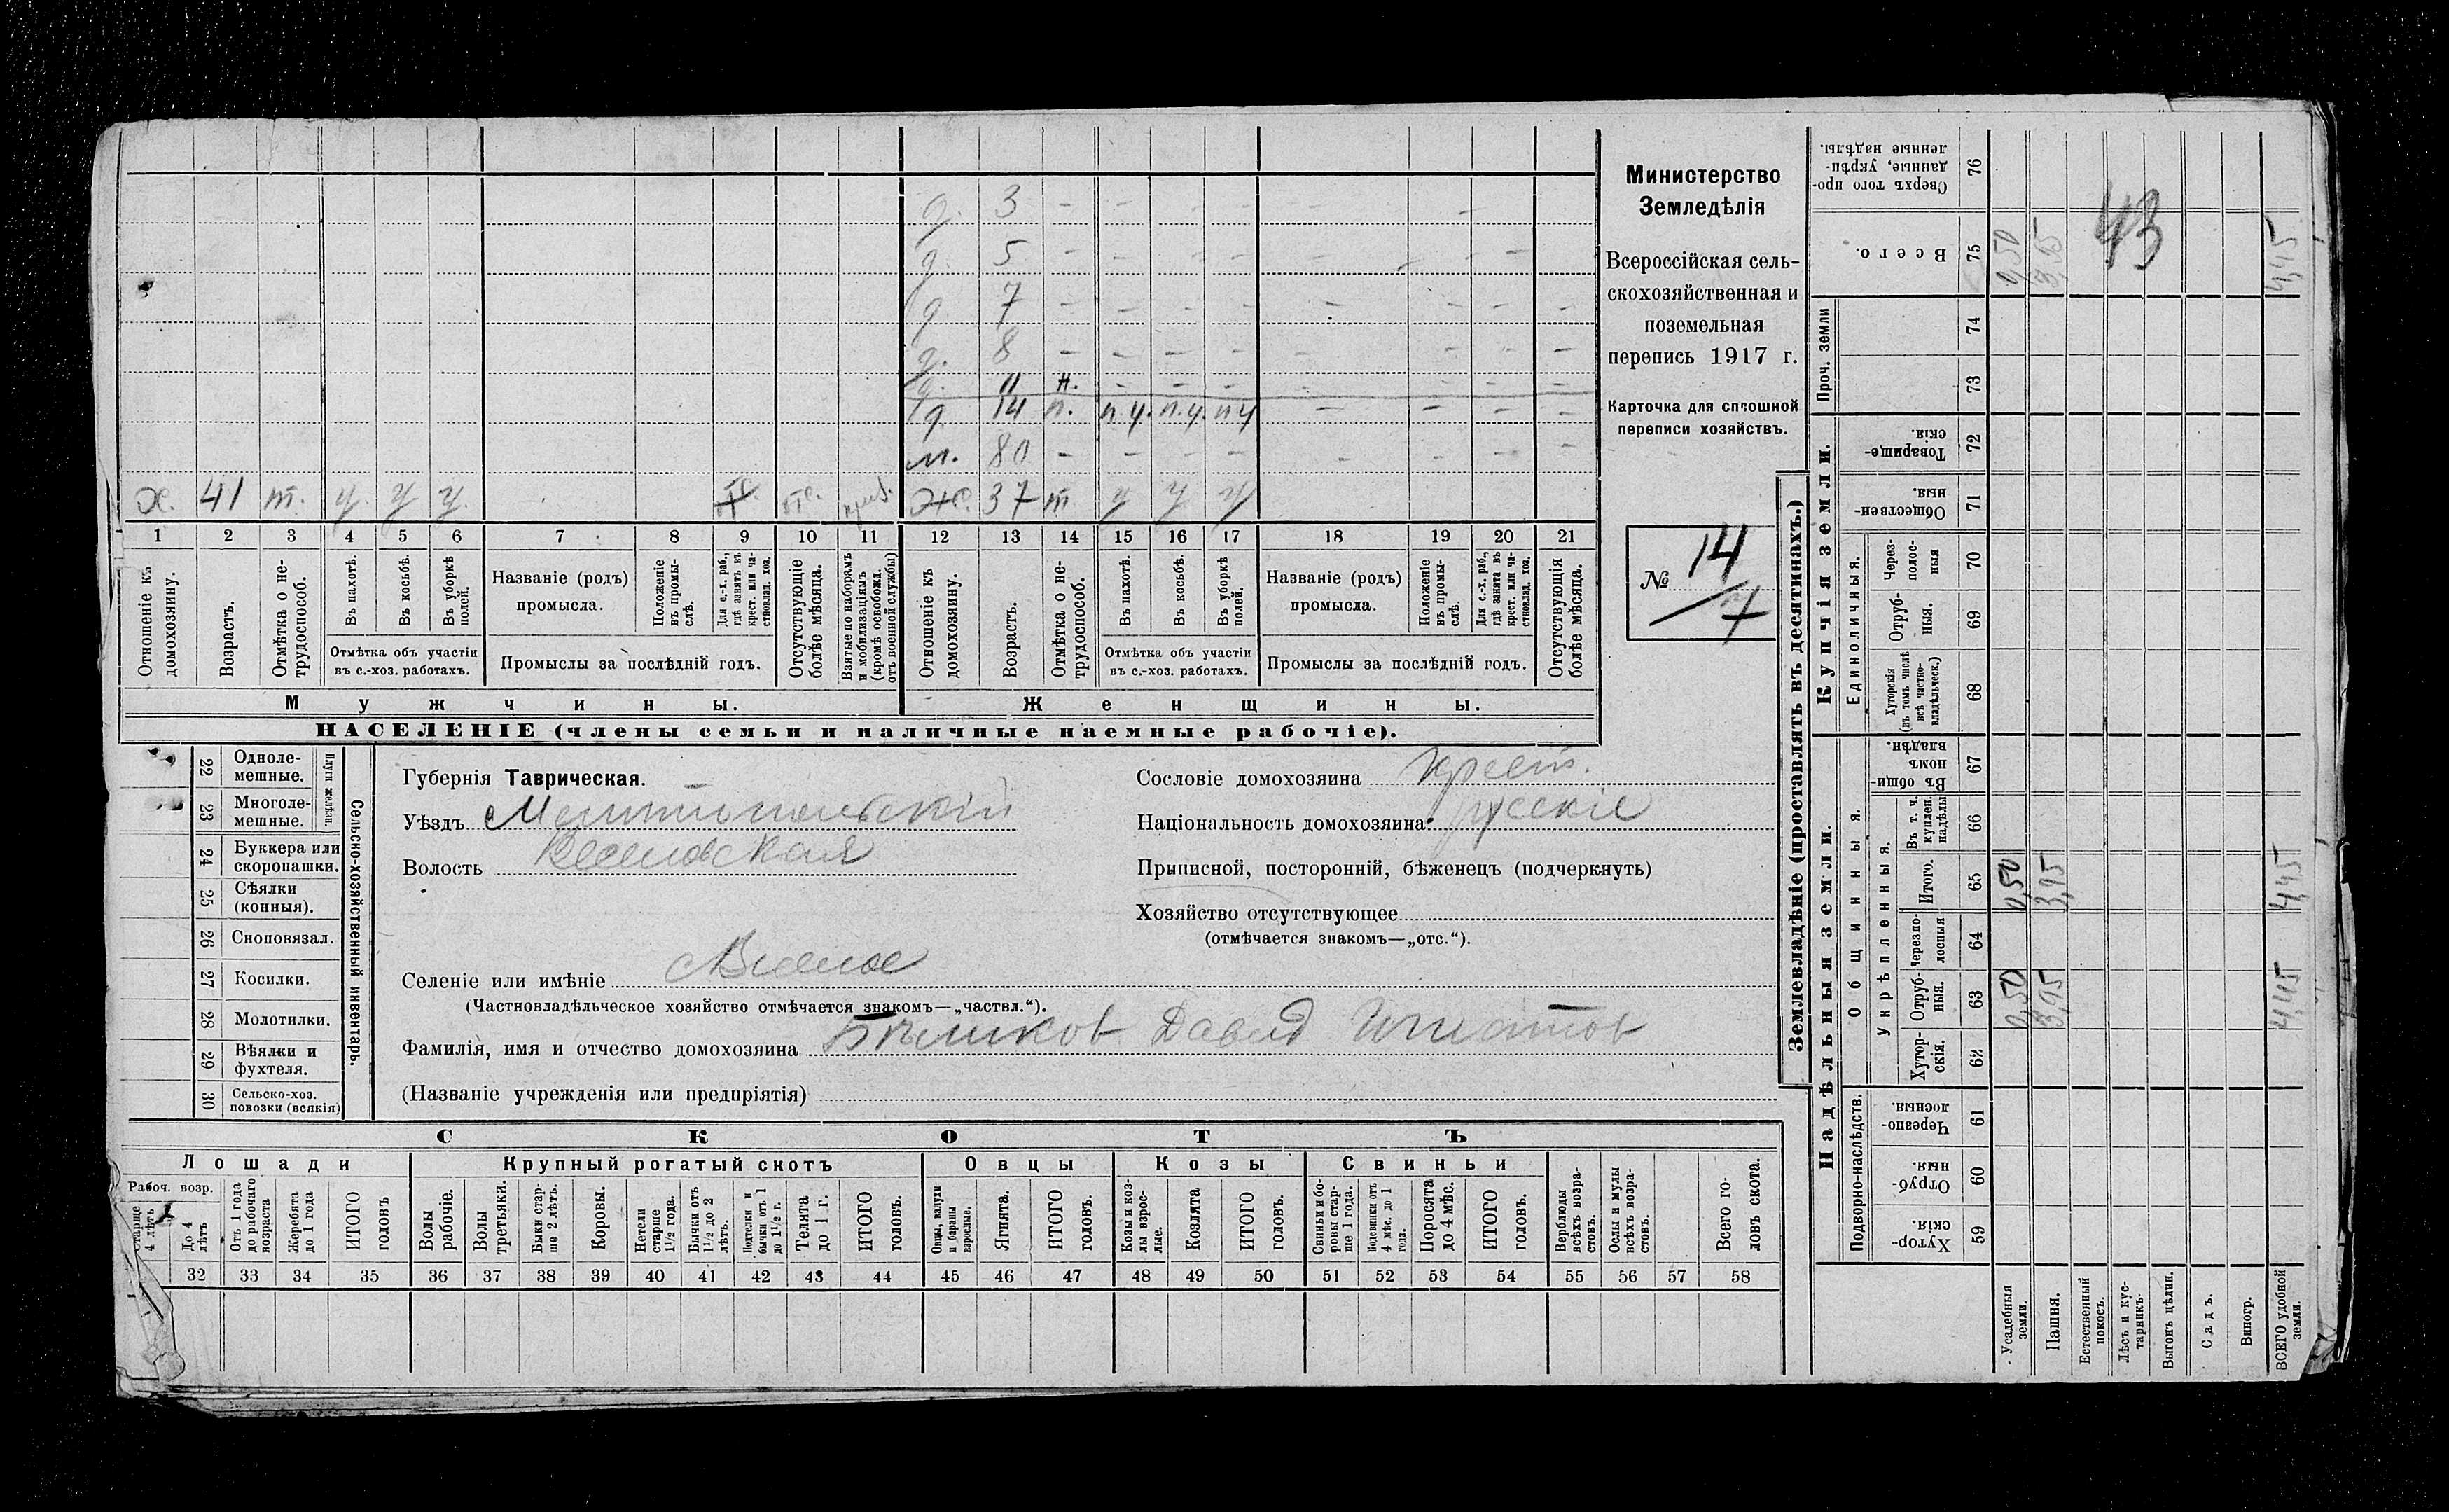 д. 3 – – – – – –
д. 5 – – – – – – –
д 7 – – – – – – – –
д. 8 – – – – – – – –
д. 11 н. – – – – – – –
д. 14 п. п.у. п.у. п у – – – –
м. 80 – – – – – – – –
х. 41 т. у. у у. от. же. 37 т у у у
1 2 3 4 5 6 7 8 9 10 11 12 13 14 15 16 17 18 19 20 21
Отношеніе къ домохозяину.
Возрастъ.
Отмѣтка о не-трудоспособ.
Въ пахотѣ.
Въ косьбѣ.
Въ уборкѣ полей.
Отмѣтка объ участіи
въ с.-хоз. работахъ.
Названіе (родъ)
промысла.
Положеніе въ промы-слѣ.
Для с.-х. раб., гдѣ занятъ въ крест. или ча-стновлад. хоз.
Промыслы за послѣдній годъ.
Отсутствующіе болѣе мѣсяца.
Взятые по наборамъ и мобилизаціямъ (кромѣ освобожд. отъ военной службы)
Отношеніе къ домохозяину.
Возрастъ.
Отмѣтка о не-трудоспособ.
Въ пахотѣ.
Въ косьбѣ.
Въ уборкѣ полей.
Отмѣтка объ участіи
въ с.-хоз. работахъ.
Названіе (родъ)
промысла.
Положеніе въ промы-слѣ.
Для с.-х. раб., гдѣ занята въ крест. или ча-стновлад. хоз.
Промыслы за послѣдній годъ.
Отсутствующія болѣе мѣсяца.
Мужчины. Женщины.
НАСЕЛЕНІЕ (члены семьи и наличные наемные рабочіе).
Министерство
Земледѣлія
Всероссійская сель-
скохозяйственная и
поземельная
перепись 1917 г.
Карточка для сплошной
переписи хозяйствъ.
№ 14
7
22 Одноле-мешные.
23 Многоле-мешные.
Плуги желѣзн.
24 Буккера или скоропашки.
25 Сѣялки (конныя).
26 Сноповязал.
27 Косилки.
28 Молотилки.
29 Вѣялки и фухтеля.
30 Сельско-хоз. повозки (всякія)
Сельско-хозяйственный инвентарь.
Губернія Таврическая.
Уѣздъ Мелитопольскій
Волость Веселовская
Сословіе домохозяина крест.
Національность домохозяина русскіе
Приписной, посторонній, бѣженецъ (подчеркнуть)
Хозяйство отсутствующее
(отмѣчается знакомъ—„отс.“).
Селеніе или имѣніе
(Частновладѣльческое хозяйство отмѣчается знакомъ—„частвл.“).
Фамилія, имя и отчество домохозяина Давид Игнатов
(Названіе учрежденія или предпріятія)
СКОТЪ
Лошади Крупный рогатый скотъ Овцы Козы Свиньи
Рабоч. возр.
Старше 4 лѣтъ
До 4 лѣтъ
Отъ 1 года до рабочаго возраста
Жеребята до 1 года
ИТОГО головъ
Волы рабочіе.
Волы третьяки.
Быки стар-ше 2 лѣтъ.
Коровы.
Нетели старше 1 1/2 года.
Бычки отъ 1 1/2 до 2 лѣтъ.
Подтелки и бычки отъ 1 до 1 1/2 г.
Телята до 1 г.
ИТОГО головъ.
Овцы, валухи и бараны взрослые.
Ягнята.
ИТОГО головъ.
Козы и коз-лы взрос-лые.
Козлята
ИТОГО головъ.
Свиньи и бо-ровы стар-ше 1 года.
Подсвинки отъ 4 мѣс. до 1 года.
Поросята до 4 мѣс.
ИТОГО головъ.
Верблюды всѣхъ возра-стовъ.
Ослы и мулы всѣхъ возра-стовъ.
Всего го-ловъ скота.
32 33 34 35 36 37 38 39 40 41 42 43 44 45 46 47 48 49 50 51 52 53 54 55 56 57 58
Землевладѣніе (проставлять въ десятинахъ.)
Купчія земли.
Надѣльныя земли.
Сверхъ того про-данные, укрѣп-ленные надѣлы. 76
43
Всего. 75 0,50 3,95 4,45
Проч. земли 74
73
Товарище-скія. 72
Обществен-ныя. 71
Единоличныя.
Через-полос-ныя 70
Отруб-ныя. 69
Хуторскія (въ томъ числѣ всѣ частно-владѣльческ.) 68
Общинныя.
Въ общи-номъ владѣн. 67
Укрѣпленныя.
Въ т. ч. куплен. надѣлы 66
Итого. 65 0,50 3,95 4,45
Черезпо-лосныя 64
Отруб-ныя. 63 0,50 3,95 4,45
Хутор-скія. 62
Подворно-наслѣдств.
Черезпо-лосныя. 61
Отруб-ныя. 60
Хутор-скія. 59
Усадебныя земли.
Пашня.
Естественный покосъ.
Лѣсъ и кус-тарникъ.
Выгонъ цѣлин.
Садъ.
Виногр.
ВСЕГО удобной земли.